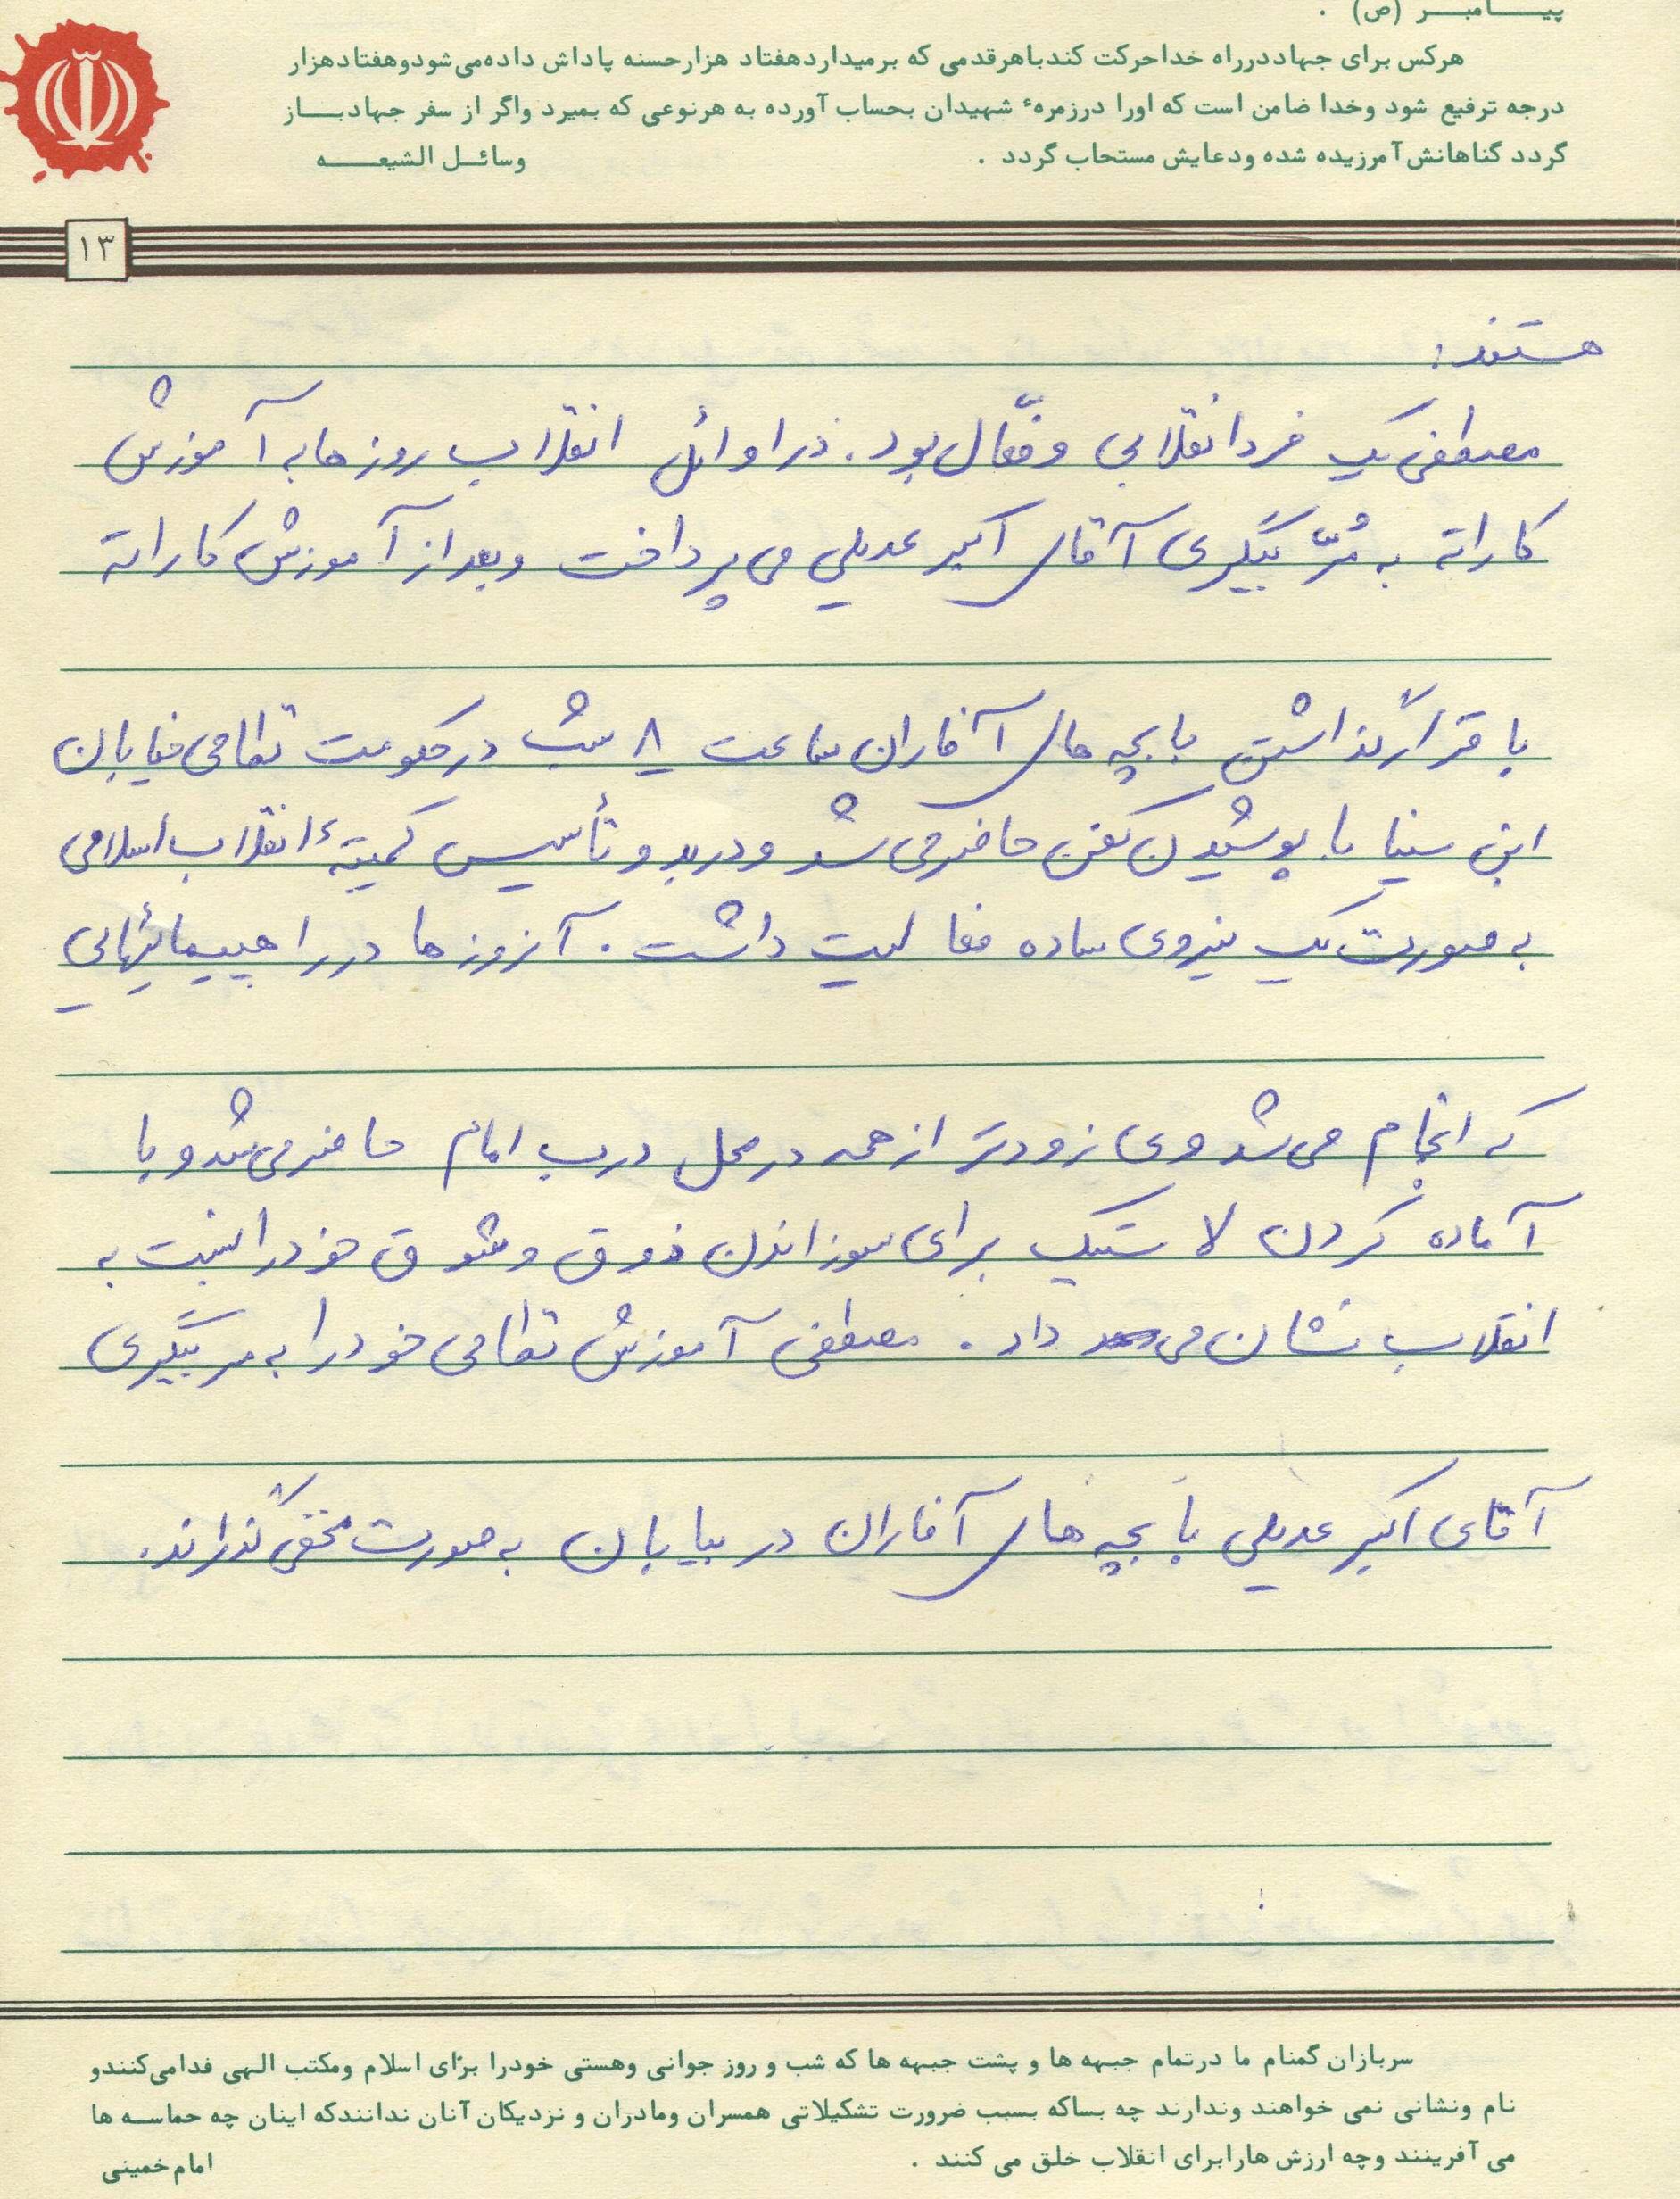 پیــــامبــــر (ص) .
هرکس برای جهاددرراه خداحرکت کندباهرقدمی که برمیداردهفتاد هزارحسنه پاداش داده‌می‌شودوهفتادهزار
درجه ترفیع شود وخدا ضامن است که اورا درزمرهٔ شهیدان بحساب آورده به هرنوعی که بمیرد واگر از سفر جهادبــاز
گردد گناهانش آمرزیده شده ودعایش مستحاب گردد . وسائــل الشیعــــه
۱۳
هستند:
مصطفی یک فرد انقلابی و فعّال بود. در اوائل انقلاب روزها به آموزش
کاراته به مربّیگری آقای اکبر عدیلی می پرداخت و بعد از آموزش کاراته
با قرار گذاشتن با بچه های آفاران ساعت ۸ شب در حکومت نظامی خیابان
ابن سینا با پوشیدن کفن حاضر می شد و در بدو تأسیس کمیتهٔ انقلاب اسلامی
به صورت یک نیروی ساده فعالیت داشت. آنروزها در راهپیمائیهایی
که انجام می شد وی زودتر از همه در محل درب امام حاضر می شد و با
آماده کردن لاستیک برای سوزاندن ذوق و شوق خود را نسبت به
انقلاب نشان می داد. مصطفی آموزش نظامی خود را به مربیگری
آقای اکبر عدیلی با بچه های آفاران در بیابان به صورت مخفی گذراند.
سربازان گمنام ما درتمام جبهه ها و پشت جبهه ها که شب و روز جوانی وهستی خودرا برای اسلام ومکتب الهی فدامی‌کنندو
نام ونشانی نمی خواهند وندارند چه بساکه بسبب ضرورت تشکیلاتی همسران ومادران و نزدیکان آنان ندانندکه اینان چه حماســه ها
می آفرینند وچه ارزش هارابرای انقلاب خلق می کنند . امام خمینی